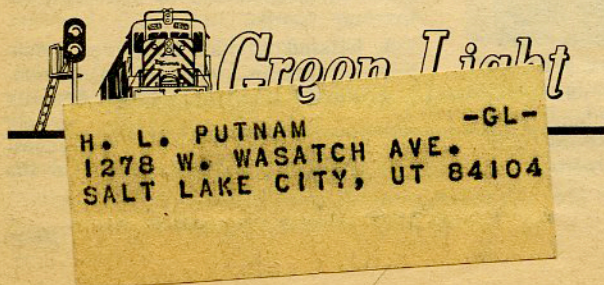 Green Light
H. L. PUTNAM -GL-
1278 W. WASATCH AVE.
SALT LAKE CITY, UT 84104